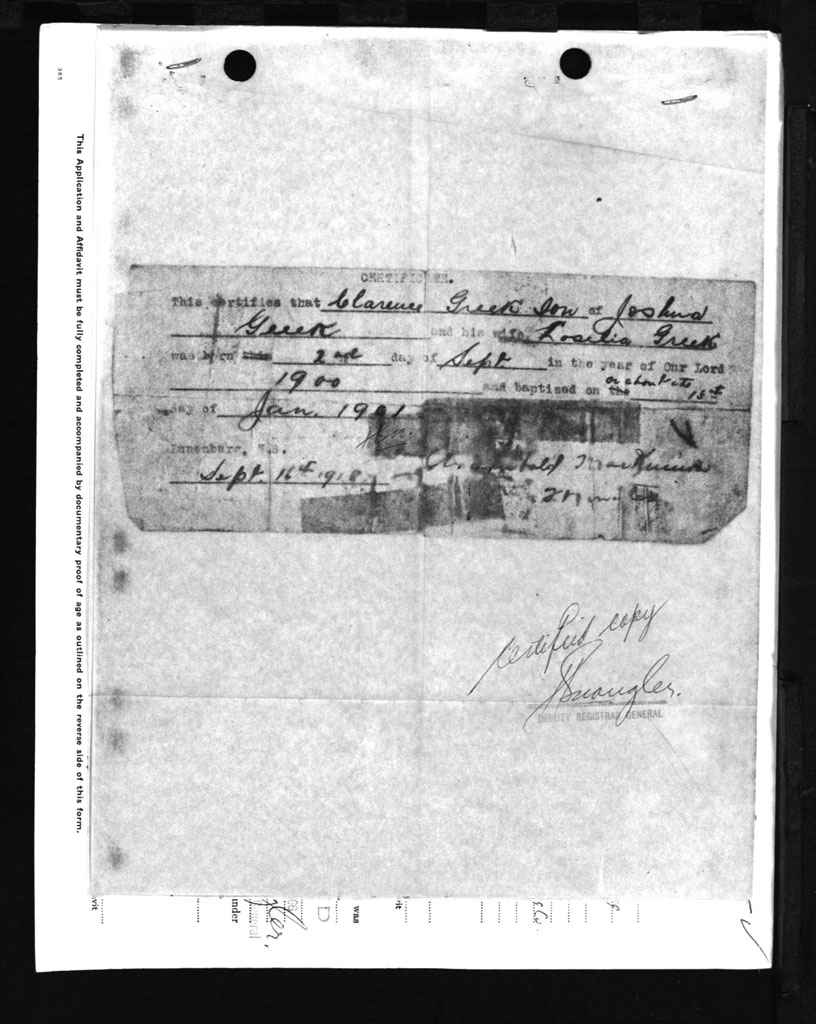 385
This Application and Affidavit must be fully completed and accompanied by documentary proof of age as outlined on the reverse side of this form.
CERTIFICATE.
This certifies that Clarence Greek Son of Joshua
Greek and his wife Losilia Greek
was born this 2nd day of Sept in the year of Our Lord
1900 and baptised on the or about 15th
day of Jan. 1901
Lunenburg, N.S.
Sept. 16th 1918
Certified copy
DEPUTY REGISTRAR GENERAL
vit
under
D
was
vit